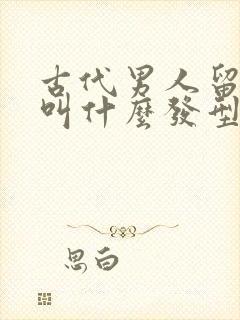 古代男人留
叫什麼發型
思白